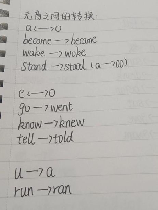 元音之间的转换
a<—>o
become —>became
wake —>woke
Stand —>stood (a —>oo)
e<—>o
go —>went
know —>knew
tell —>told
u —>a
run —>ran